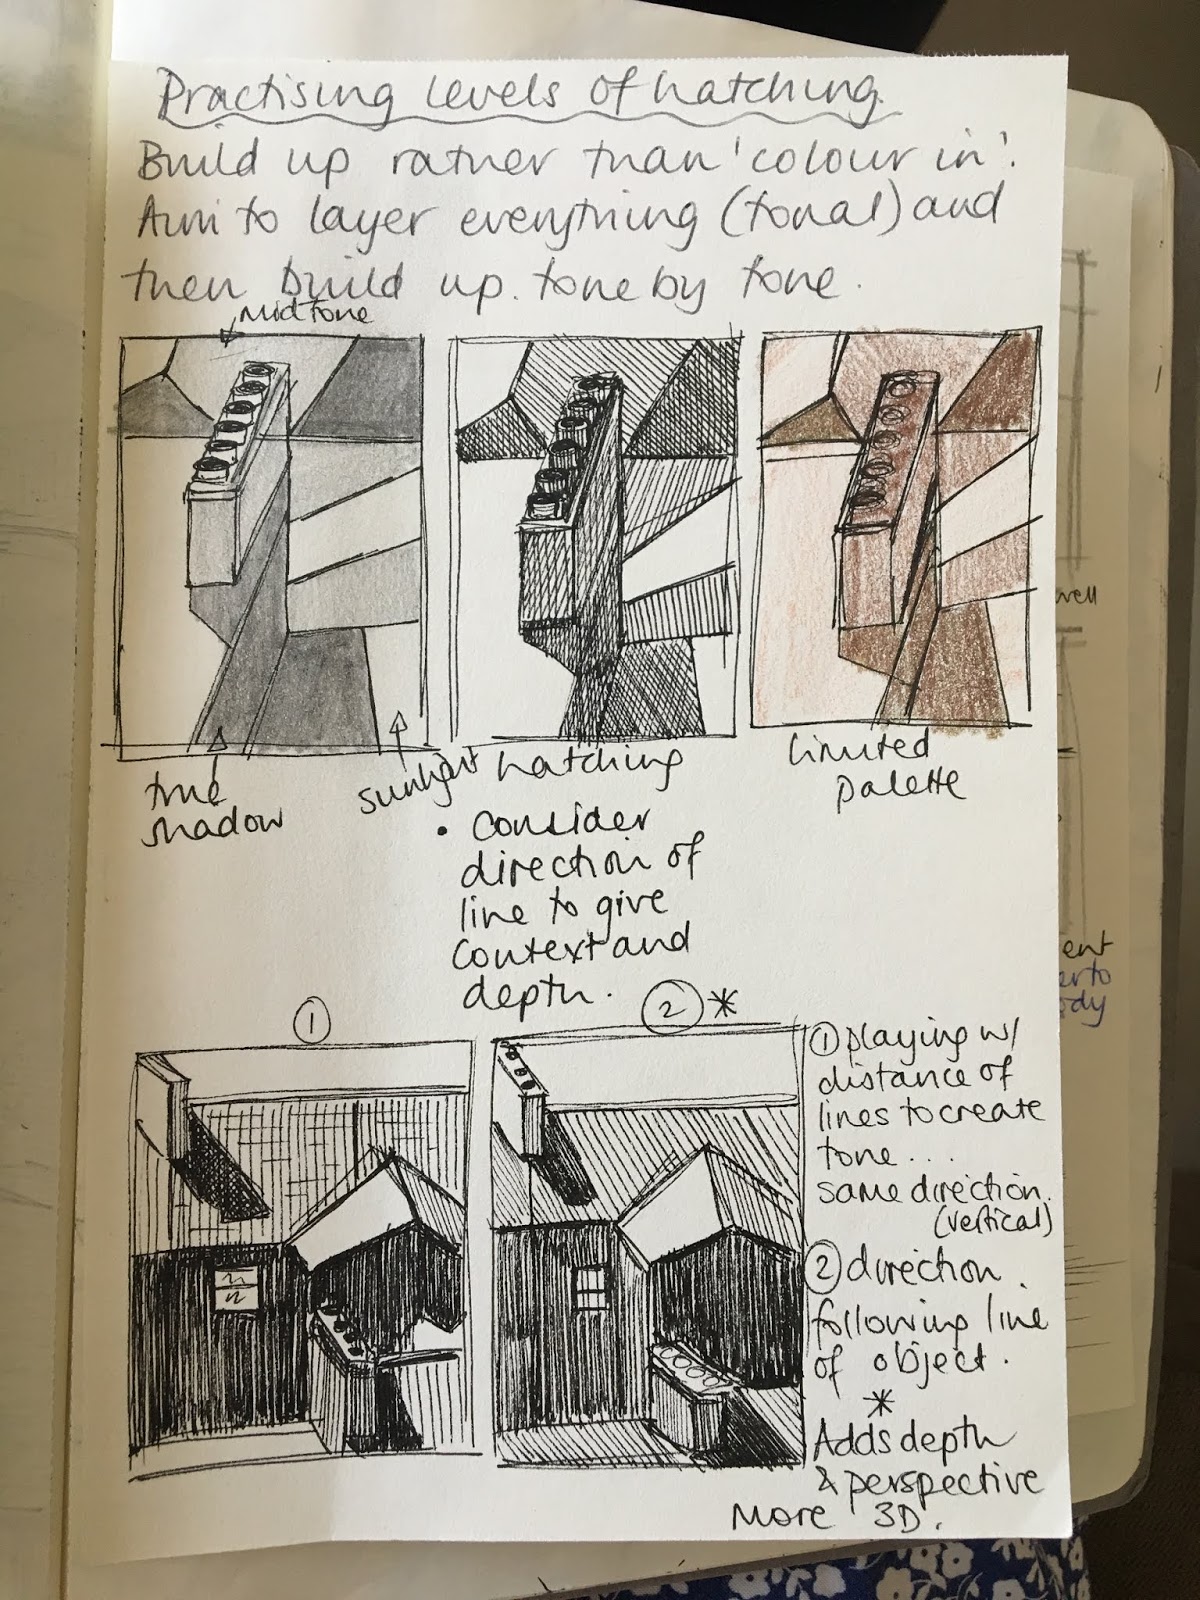 Practising levels of hatching.
Build up rather than 'colour in'.
Aim to layer everything (tonal) and
then build up tone by tone.
midtone
true
shadow
sunlight
hatching
limited
palette
• Consider
direction of
line to give
context and
depth.
①
② *
① playing w/
distance of
lines to create
tone...
same direction.
(vertical)
② direction
following line
of object.
*
Adds depth
& perspective
More 3D.
well
ent
erto
ody